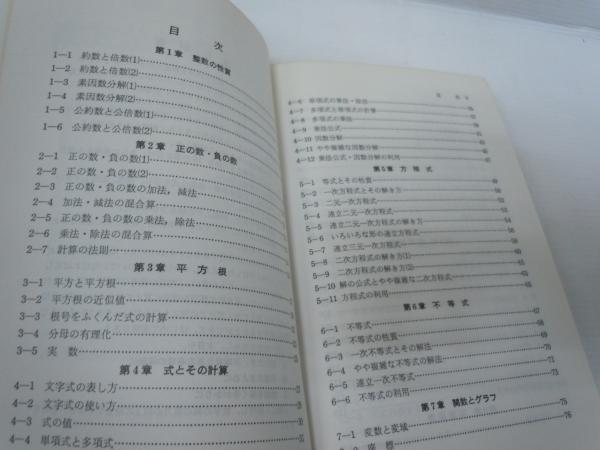 目 次
第1章 整数の性質
1—1 約数と倍数(1)
1—2 約数と倍数(2)
1—3 素因数分解(1)
1—4 素因数分解(2)
1—5 公約数と公倍数(1)
1—6 公約数と公倍数(2)
第2章 正の数・負の数
2—1 正の数・負の数(1)
2—2 正の数・負の数(2)
2—3 正の数・負の数の加法，減法
2—4 加法・減法の混合算
2—5 正の数・負の数の乗法，除法
2—6 乗法・除法の混合算
2—7 計算の法則
第3章 平方根
3—1 平方と平方根
3—2 平方根の近似値
3—3 根号をふくんだ式の計算
3—4 分母の有理化
3—5 実 数
第4章 式とその計算
4—1 文字式の表し方
4—2 文字式の使い方
4—3 式の値
4—4 単項式と多項式
4—6 単項式の乗法・除法
4—7 多項式と単項式の計算
4—8 多項式の乗法
4—9 乗法公式
4—10 因数分解
4—11 やや複雑な因数分解
4—12 乗法公式・因数分解の利用
第5章 方程式
5—1 等式とその性質
5—2 一次方程式とその解き方
5—3 二元一次方程式
5—4 連立二元一次方程式
5—5 連立二元一次方程式の解き方
5—6 いろいろな形の連立方程式
5—7 連立三元一次方程式
5—8 二次方程式の解き方(1)
5—9 二次方程式の解き方(2)
5—10 解の公式とやや複雑な二次方程式
5—11 方程式の利用
第6章 不等式
6—1 不等式 67
6—2 不等式の性質 68
6—3 一次不等式とその解法 69
6—4 やや複雑な不等式の解法 71
6—5 連立一次不等式
6—6 不等式の利用 73
第7章 関数とグラフ
7—1 変数と変域 75
7—2 座 標 76